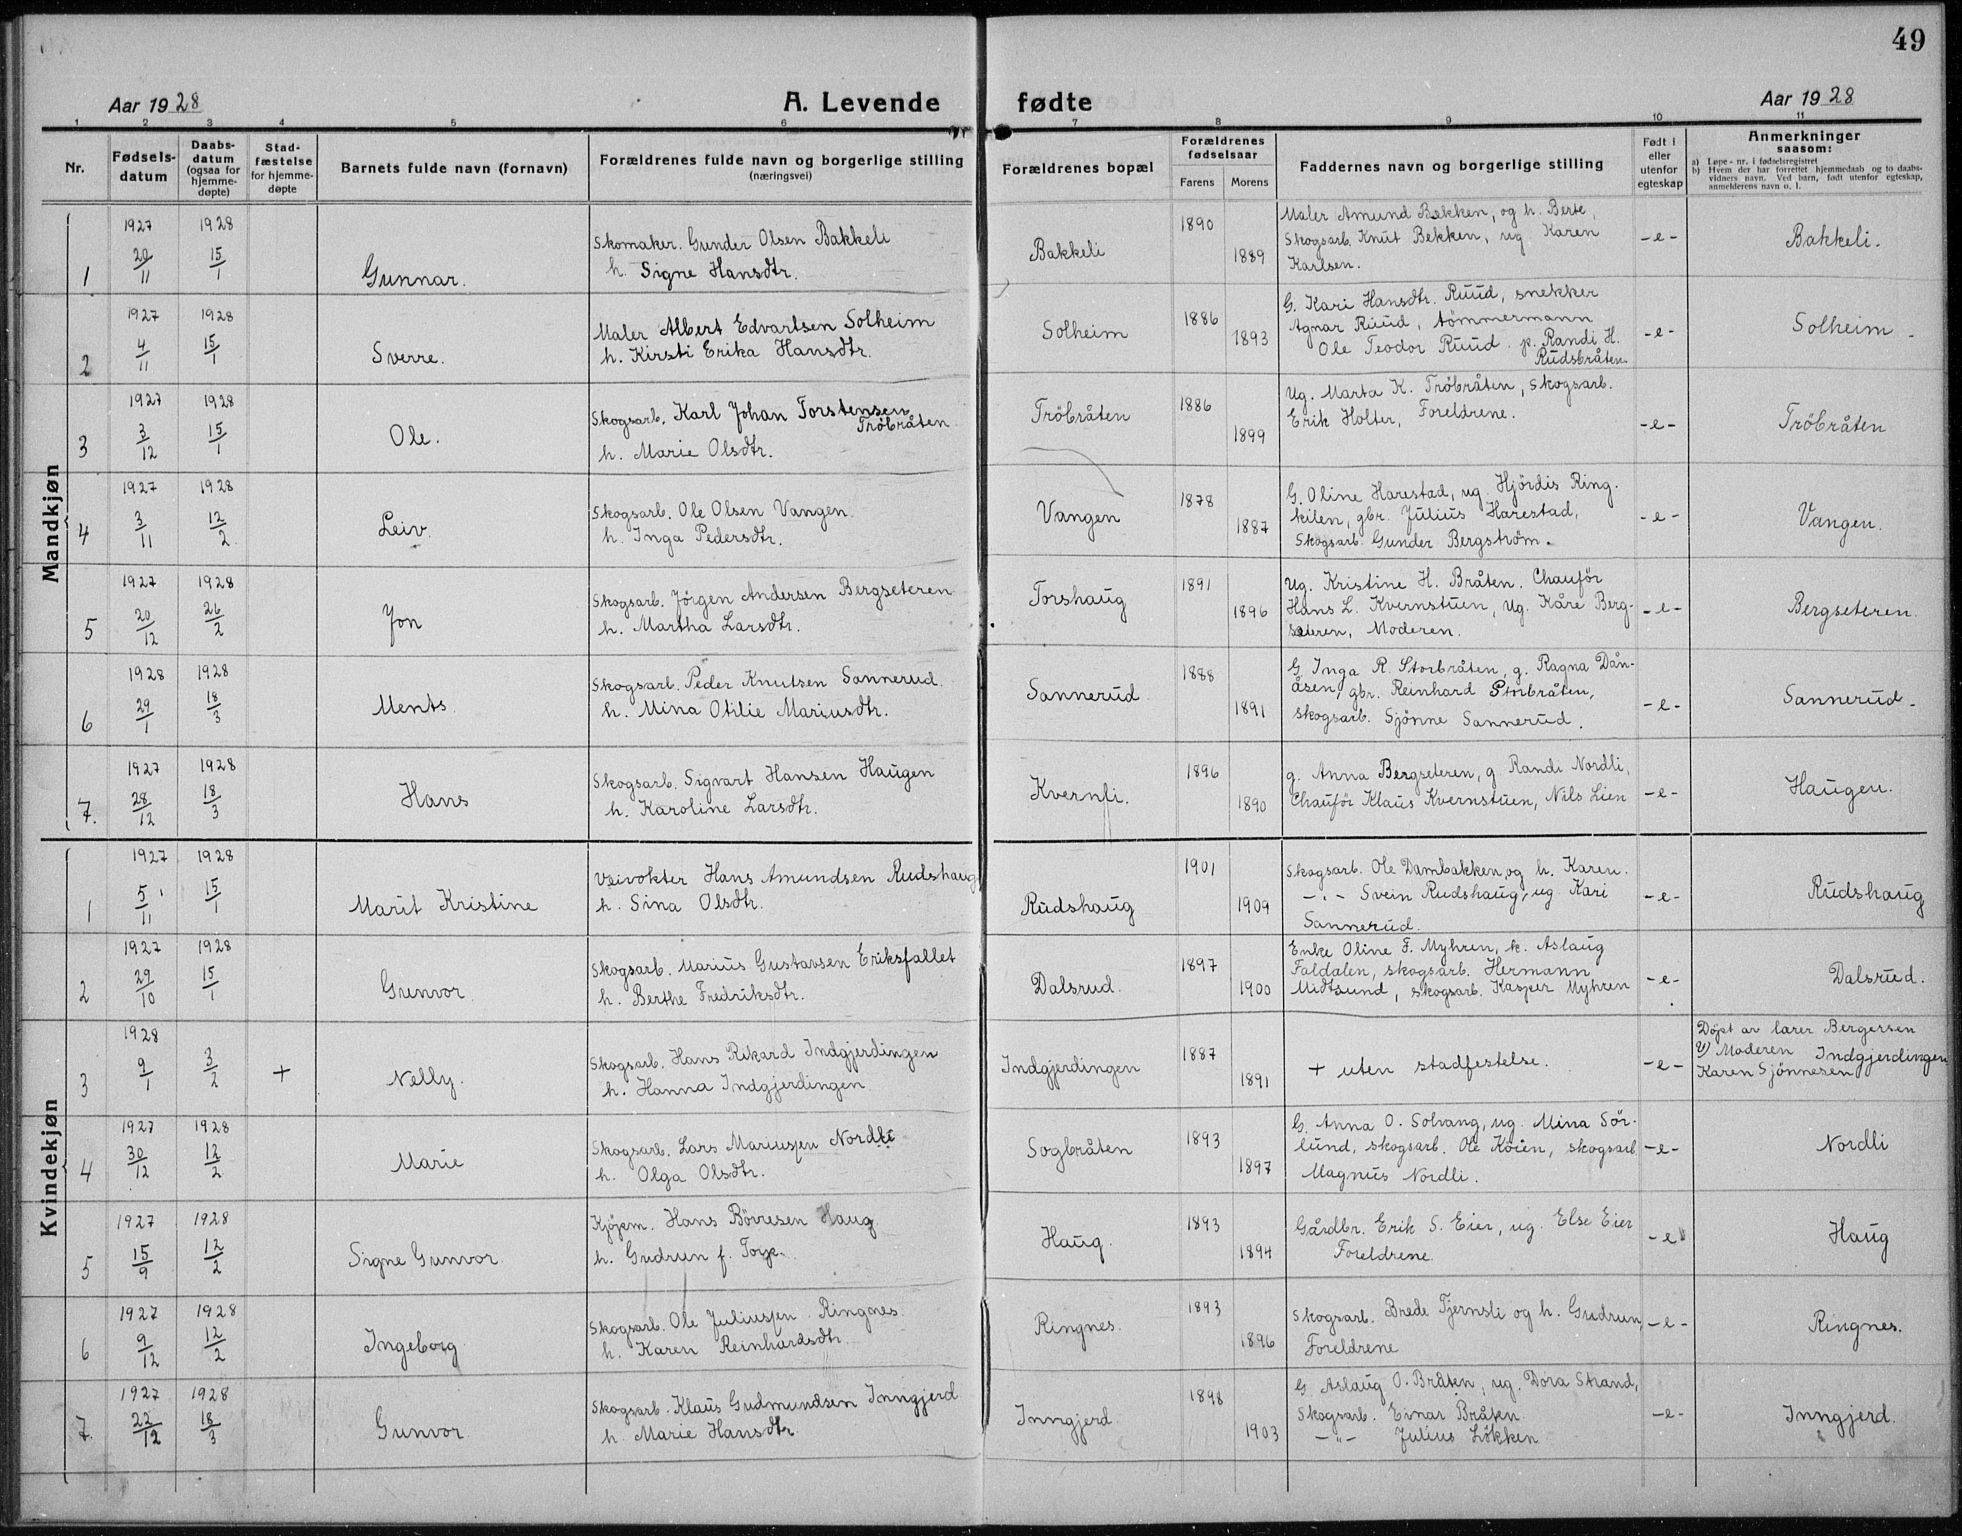 49
Aar 1928
A. Levende fødte
Aar 1928
1 2 3 4 5 6 7 8 9 10 11
Nr.
Fødsels-
datum
Daabs-
datum
(ogsaa for
hjemme-
døpte)
Stad-
fæstelse
for hjemme-
døpte
Barnets fulde navn (fornavn)
Forældrenes fulde navn og borgerlige stilling
(næringsvei)
Forældrenes bopæl
Forældrenes
fødselsaar
Farens Morens
Faddernes navn og borgerlige stilling
Født i
eller
utenfor
egteskap
Anmerkninger
saasom:
a) Løpe-nr. i fødselsregistret
b) Hvem der har forrettet hjemmedaab og to daabs-
vidners navn. Ved barn, født utenfor egteskap,
anmelderens navn o. l.
Mandkjøn
1
1927 20/11
1928 15/1
Gunnar.
Skomaker. Gunder Olsen Bakkeli
h. Signe Hansdtr.
Bakkeli
1890
1889
Maler Amund Bakken, og h. Berte,
Skogsarb. Knut Bekken, ug. Karen
Karlsen.
-e-
Bakkeli.
2
1927 4/11
1928 15/1
Sverre.
Maler Albert Edvartsen Solheim
h. Kirsti Erika Hansdtr.
Solheim
1886
1893
G. Kari Hansdtr. Ruud, snekker
Agnar Ruud, tømmermann
Ole Teodor Ruud. p. Randi H.
Rudsbråten.
-e-
Solheim
3
1927 3/12
1928 15/1
Ole.
Skogsarb. Karl Johan Torstensen
Tröbråten
h. Marie Olsdtr.
Tröbråten
1886
1899
Ug. Marta K. Tröbråten, Skogsarb.
Erik Holter, Foreldrene.
-e-
Tröbråten
4
1927 3/11
1928 12/2
Leiv.
Skogsarb. Ole Olsen Vangen.
h. Inga Pedersdtr.
Vangen
1878
1887
G. Oline Harestad, ug. Hjördis Ring-
kilen, gbr. Julius Harestad,
Skogsarb. Gunder Bergström.
-e-
Vangen.
5
1927 20/12
1928 26/2
Jon
Skogsarb. Jørgen Andersen Bergseteren
h. Martha Larsdtr.
Torshaug
1891
1896
Ug. Kristine H. Bråten. Chauför
Hans L. Kvernstuen, Ug. Kåre Berg-
seteren, Moderen.
-e-
Bergseteren.
6
1928 29/1
1928 18/3
Ments.
Skogsarb. Peder Knutsen Sannerud.
h. Mina Otilie Mariusdtr.
Sannerud
1888
1891
G. Inga R. Storbråten, g. Ragna Dån-
åsen, gbr. Reinhard Storbråten,
skogsarb. Sjönne Sannerud.
-e-
Sannerud.
7.
1927 28/12
1928 18/3
Hans
Skogsarb. Sigvart Hansen Haugen
h. Karoline Larsdtr.
Kvernli.
1896
1890
g. Anna Bergseteren, g Randi Nordli,
Chauför Klaus Kvernstuen, Nils Lien
-e-
Haugen.
Kvindekjøn
1
1927 5/11
1928 15/1
Marit Kristine
Veivokter Hans Amundsen Rudshaug
h. Sina Olsdtr.
Rudshaug
1901
1909
Skogsarb. Ole Dambakken, og h. Karen.
-"- Svein Rudshaug, ug. Kari
Sannerud.
-e-
Rudshaug
2
1927 29/10
1928 15/1
Gunvor.
Skogsarb. Marius Gustavsen Eriksfallet
h. Berthe Fredriksdtr.
Dalsrud.
1897
1900
Enke Oline F. Myhren, k. Aslaug
Faldalen, skogsarb. Hermann
Midtsund, skogsarb. Kasper Myhren
-e-
Dalsrud.
3
1928 9/1
3/2
+
Nelly.
Skogsarb. Hans Rikard Indgjerdingen
h. Hanna Indgjerdingen
Indgjerdingen
1887
1891
+ uten stadfestelse.
-e-
Døpt av lærer Bergersen
V) Moderen Indgjerdingen
Karen Sjönnesen
4
1927 30/12
1928 12/2
Marie
Skogsarb. Lars Mariussen Nordli
h. Olga Olsdtr.
Sogbråten
1893
1897
G. Anna O. Solvang, ug. Mina Sör-
lund, skogsarb. Ole Köien, skogsarb
Magnus Nordli.
-e-
Nordli
5
1927 15/9
1928 12/2
Signe Gunvor.
Kjøpm. Hans Børresen Haug
h. Gudrun f.
Haug.
1893
1894
Gårdbr. Erik S. Eier, ug. Else Eier
Foreldrene.
-e
Haug
6
1927 9/12
1928 12/2
Ingeborg
Skogsarb. Ole Juliussen Ringnes.
h. Karen Reinhardsdtr.
Ringnes.
1893
1896
Skogsarb. Brede Tjernsli og h. Gudrun,
Foreldrene
-e-
Ringnes.
7.
1927 22/12
1928 18/3
Gunvor.
Skogsarb. Klaus Gudmundsen Inngjerd
h. Marie Hansdtr.
Inngjerd.
1898
1903
G. Aslaug O. Bråten, ug. Dora Strand,
Skogsarb. Einar Bråten
-"- Julius Lökken
-e-
Inngjerd.